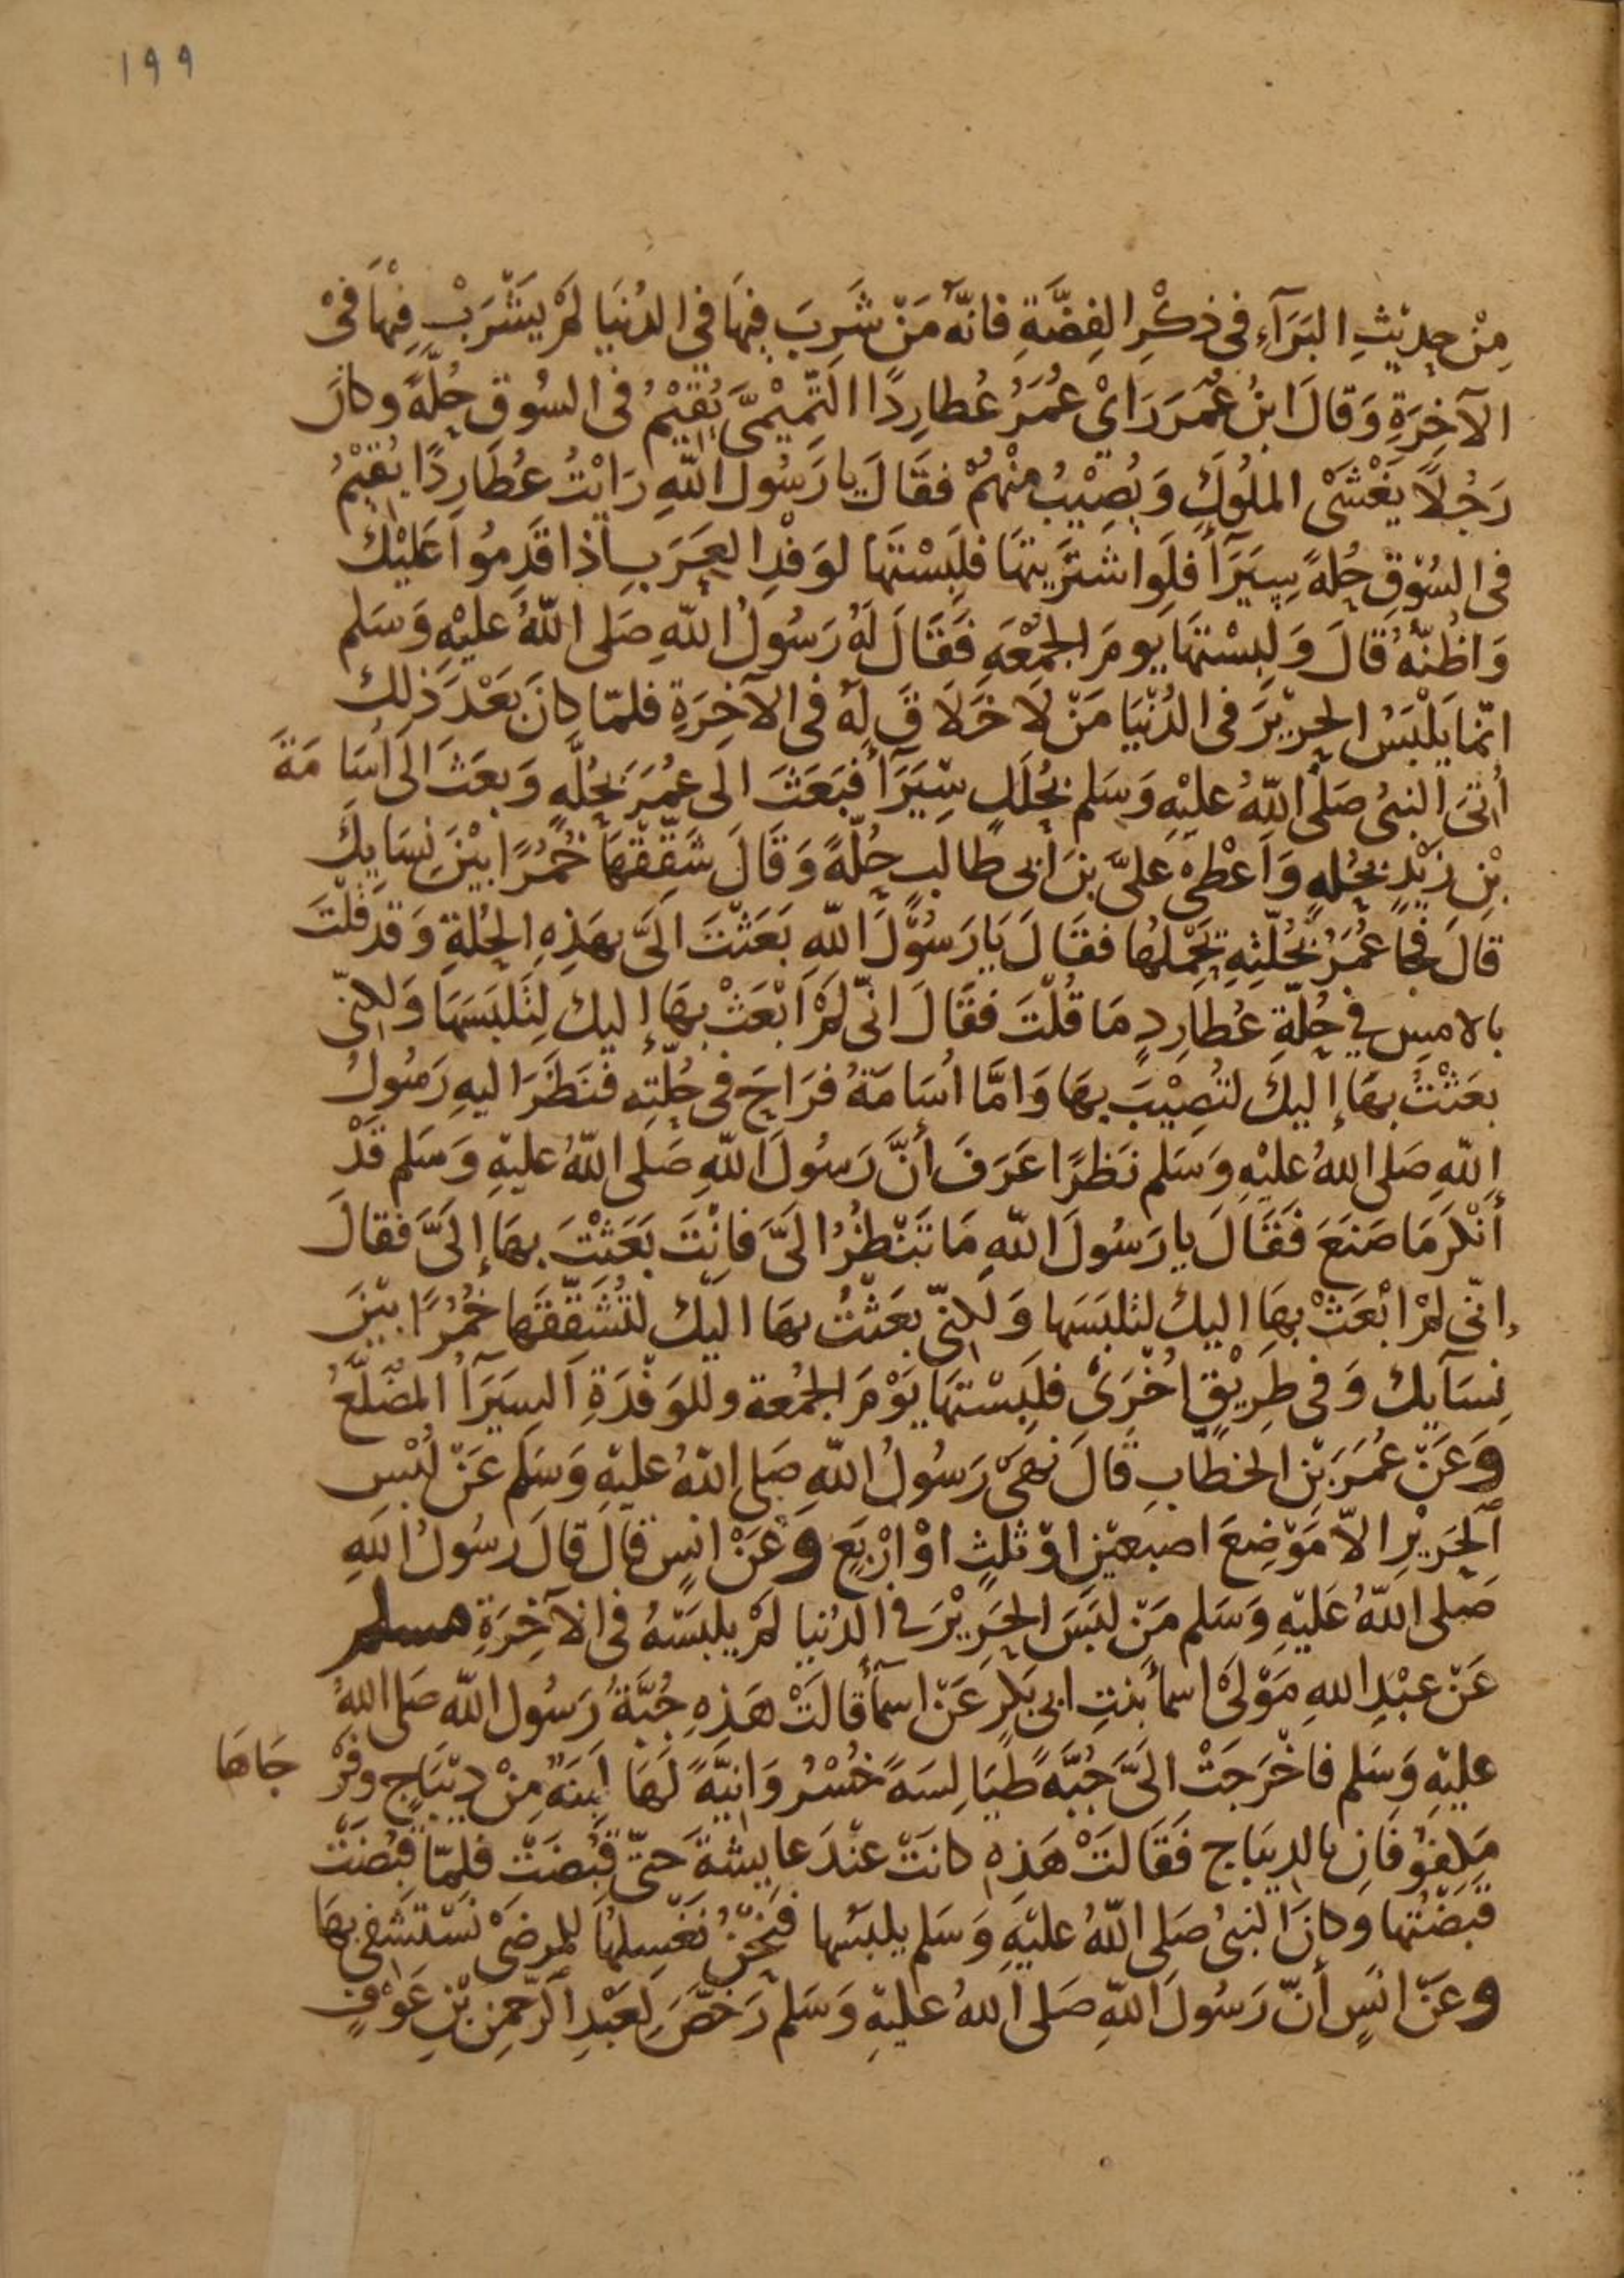 ١٩٩
مِنْ حدِيْثِ البَرَآءِ فى ذكْرِ الفِضَّةِ فانّهُ مَنْ شَرِبَ فِيهَا في الدُنيَا لمْ يَشْرَبْ فِيْهَا فىْ
الآخِرَةِ وَقالَ ابنُ عُمَرَ رَايْ عُمَرُ عُطارِدًا التَّمِيْمىَّ يُقيْمُ فى السُوقِ حُلّةً وكانَ
رَجُلاً يَغْشَى الملُوكَ وَيُصِيْبُ مِنْهُمْ فقَالَ يا رَسُولَ اللّهِ رَايْتُ عُطَارِدًا يُقيْمُ
فى السُوْقِ حُلةً سِيَرَآءَ فلَوا شتَرَيتَهَا فلَبِسْتَهَا لوَفْدِ العَرَبِ اذا قَدِمُوا عَليْكَ
وَاظُنّهُ قالَ وَلبِسْتَهَا يومَ الجمُعَةِ فَقَالَ لَهُ رَسُولُ اللّهِ صَلى اللّهُ عليْهِ وَسَلم
انّمَا يَلْبَسُ الحرِيْرَ فى الدُنْيَا مَنْ لَا خَلَاقَ لهُ فى الآخِرَةِ فلمّا كانَ بَعْدَ ذَلِكَ
أُتىَ النبىُ صَلى اللّهُ عليْهِ وَسَلم بحُلَلٍ سِيَرَآءَ فبَعَثَ الَى عُمَرَ بحُلّةٍ وَبعَثَ الَى اُسَامَةَ
بْنِ زَيْدٍ بحُلةٍ وَاَعْطى عَلىَّ بنَ ابى طالبٍ حُلّةً وَقَالَ شَقِّقْهَا خُمُرًا بَيْنَ نِسَايِكَ
قالَ فجَا عُمَرُ بحُلّتِهِ يَحْمِلُهَا فقَالَ يَا رَسُوْلَ اللّهِ بَعَثْتَ الَىَّ بهَذِهِ الحُلةِ وَقدْ قُلْتَ
بالامسِ في حُلّةِ عُطارِدٍ مَا قُلْتَ فقَالَ انّى لَمْ اَبْعَثْ بهَا إليكَ لتَلبَسَهَا وَلكِنّى
بعَثْتُ بهَا إليكَ لتُصِيْبَ بهَا وَامَّا اُسَامَةُ فرَاحَ فى حُلّتِه فنَظَرَ اليهِ رَسُولُ
اللّهِ صَلى اللهُ عليْهِ وَسَلم نَظرًا عَرَفَ أنَّ رَسُولَ اللّهِ صَلى اللّهُ عليْهِ وَسَلم قَدْ
أنْكرَ مَا صَنَعَ فَقَالَ يا رَسُولَ اللّهِ مَا تَنْظُرُ الَىَّ فانْتَ بَعَثْتَ بهَا إلَىَّ فقالَ
إنّى لمْ ابْعَثْ بهَا اليكَ لتلبَسَهَا وَلكِنّى بعَثْتُ بهَا اليْكَ لتُشَقِّقَهَا خُمُرًا بيْنَ
نِسَآيكَ وَفى طرِيْقٍ اُخْرَى فلَبِسْتهَا يَوْمَ الجمُعة وللوَفْدَةِ اَلسِيَرَآءُ المُضَلّعُ
وَعَنْ عُمَرَ بْنِ الخطّابِ قالَ نَهَى رَسُولُ اللّهِ صَلى اللهُ عليْهِ وَسَلم عَنْ لُبْسِ
اَلحَرِيْرِ الاّ مَوْضِعَ اصبعَيْنِ اوْ ثلثٍ اوْ ارْبَعٍ وعَنْ انَسٍ قالَ قالَ رَسُولُ اللّهِ
صَلى اللّهُ عَليْهِ وَسَلم مَنْ لبَسَ الحَرِيْرَ فى الدُنيَا لمْ يلبَسْهُ فى الآخِرَةِ مسلم
عَنْ عبْدِ اللهِ مَوْلىَ اسمآ بنتِ ابى بَكرٍ عَنْ اسمآءَ قالَتْ هَذِهِ جُبَّةُ رَسُولِ اللّه صَلى اللهُ
عليْهِ وَسَلم فاخْرَجَتْ الَىَّ جُبَّةً طَيَا لِسَةً خُسْرُوَانِيَّةً لَهَا لِبنَةُ مِنْ دِيْبَاجٍ وفرْ جَاهَا
مَكفُوفَانِ بالدِيبَاجِ فَقَالتْ هَذِهِ كانَتْ عنْدَ عايِشةَ حَتّى قُبِضَتْ فلمّا قُبِضَتْ
قبَضْتُهَا وَكانَ النبىُ صَلى اللّهُ عليْهِ وَسَلم يلبَسُها فنَحْنُ نَغْسِلهَا للمرضَى نَسْتَشْفى بهَا
وعَنْ انَسٍ أنّ رَسُولَ اللّهِ صَلى اللهُ عليْهِ وَسَلم رَخّصَ لعَبْدِ الرّحمنِ بْنِ عَوْفٍ